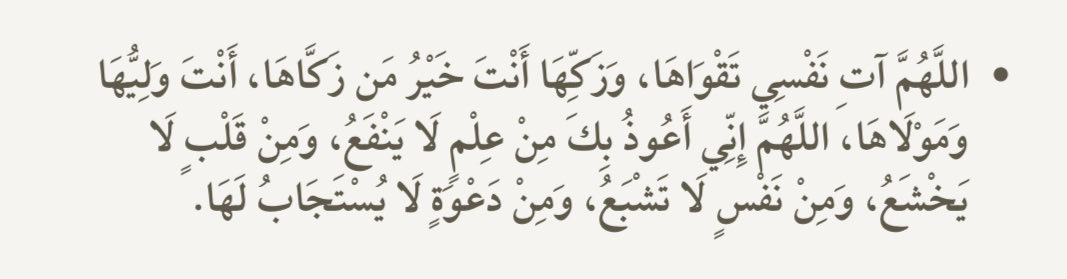 • اللَّهُمَّ آتِ نَفْسِي تَقْوَاهَا، وَزَكِّهَا أَنْتَ خَيْرُ مَن زَكَّاهَا، أَنْتَ وَلِيُّهَا
وَمَوْلَاهَا، اللَّهُمَّ إِنِّي أَعُوذُ بِكَ مِنْ عِلْمٍ لَا يَنْفَعُ، وَمِنْ قَلْبٍ لَا
يَخْشَعُ، وَمِنْ نَفْسٍ لَا تَشْبَعُ، وَمِنْ دَعْوَةٍ لَا يُسْتَجَابُ لَهَا.